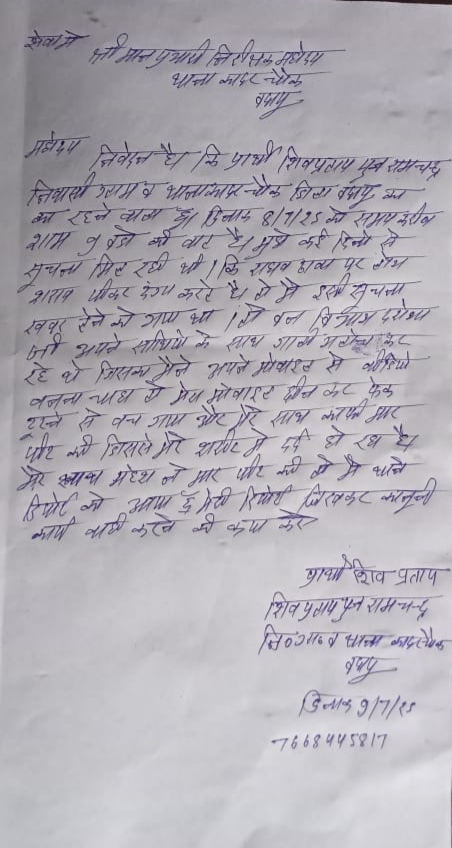 सेवा मे
श्री मान प्रभारी निरीक्षक महोदय
थाना कादर चौक
बदायूं
महोदय
निवेदन है। कि प्रार्थी शिवप्रताप पुत्र रामचन्द्र
निवासी ग्राम व थाना कादर चौक जिला बदायूं का
का रहने वाला हूं। दिनांक 8/7/25 को समय करीब
शाम 9 बजे की बात है। मुझे कई दिनो से
सूचना मिल रही थी। कि राघव ढावा पर लोग
शराब पीकर दंगा करते है। तो मै इसी सूचना
खबर लेने को गया था। तो वन विभाग दरोगा
जी अपने साथियो के साथ गाली गलोच कर
रहे थे जिसका मैने अपने मोबाइल से वीडियो
बनाना चाहा तो मेरा मोबाइल छीन कर फेक
टूटने से बच गया और मेरे साथ काफी मार
पीट की जिससे मेरे शरीर मे दर्द हो रहा है।
मेरे साथ ने मार पीट की तो मै थाने
रिपोर्ट को आया हूं मेरी रिपोर्ट लिखकर कानूनी
कार्य वाही करने की कृपा करे
प्रार्थी शिव प्रताप
शिवप्रताप पुत्र रामचन्द्र
नि० ग्राम व थाना कादरचौक
बदायूं
दिनांक 9/7/25
7668445817